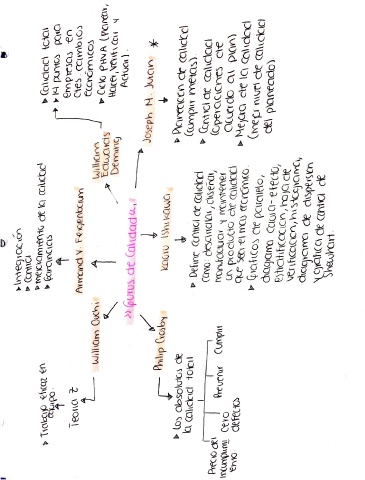 » Gurus de Calidad «
William Ouchi
Teoría Z
▸ Trabajo eficaz en
equipo
Armand V. Feigenbaum
▸ Integración
▸ Control
▸ mejoramiento de la calidad
▸ Gerencias
William
Edwards
Deming
▸ Calidad total
▸ 14 puntos para
empresas en
cambios
económicos
▸ Ciclo PHVA (Planear,
Hacer, Verificar y
Actuar).
Joseph M. Juran *
▸ Planeación de calidad
(cumplir metas)
▸ Control de calidad
(operaciones de
acuerdo al plan)
▸ Mejora de la calidad
(mejor nivel de calidad
del planeado)
Kaoru Ishikawa
▸ Define control de calidad
como: desarrollar, diseñar,
manufacturar y mantener
un producto de calidad
que sea el más económico.
▸ Gráficos de pareto,
diagrama causa-efecto,
Estratificación, hoja de
verificación, histograma,
diagrama de dispersión
y gráfica de control de
Shewhart.
Philip Crosby
▸ Los absolutos de
la calidad total
Precio del
incumplimi
ento
Cero
defectos
Prevenir
Cumplir